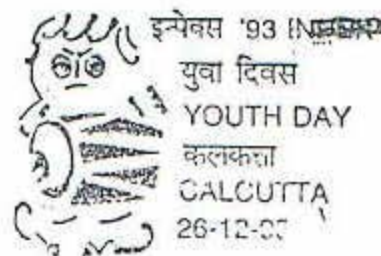 इन्पेक्स '93
युवा दिवस
YOUTH DAY
कलकत्ता
CALCUTTA
26-12-